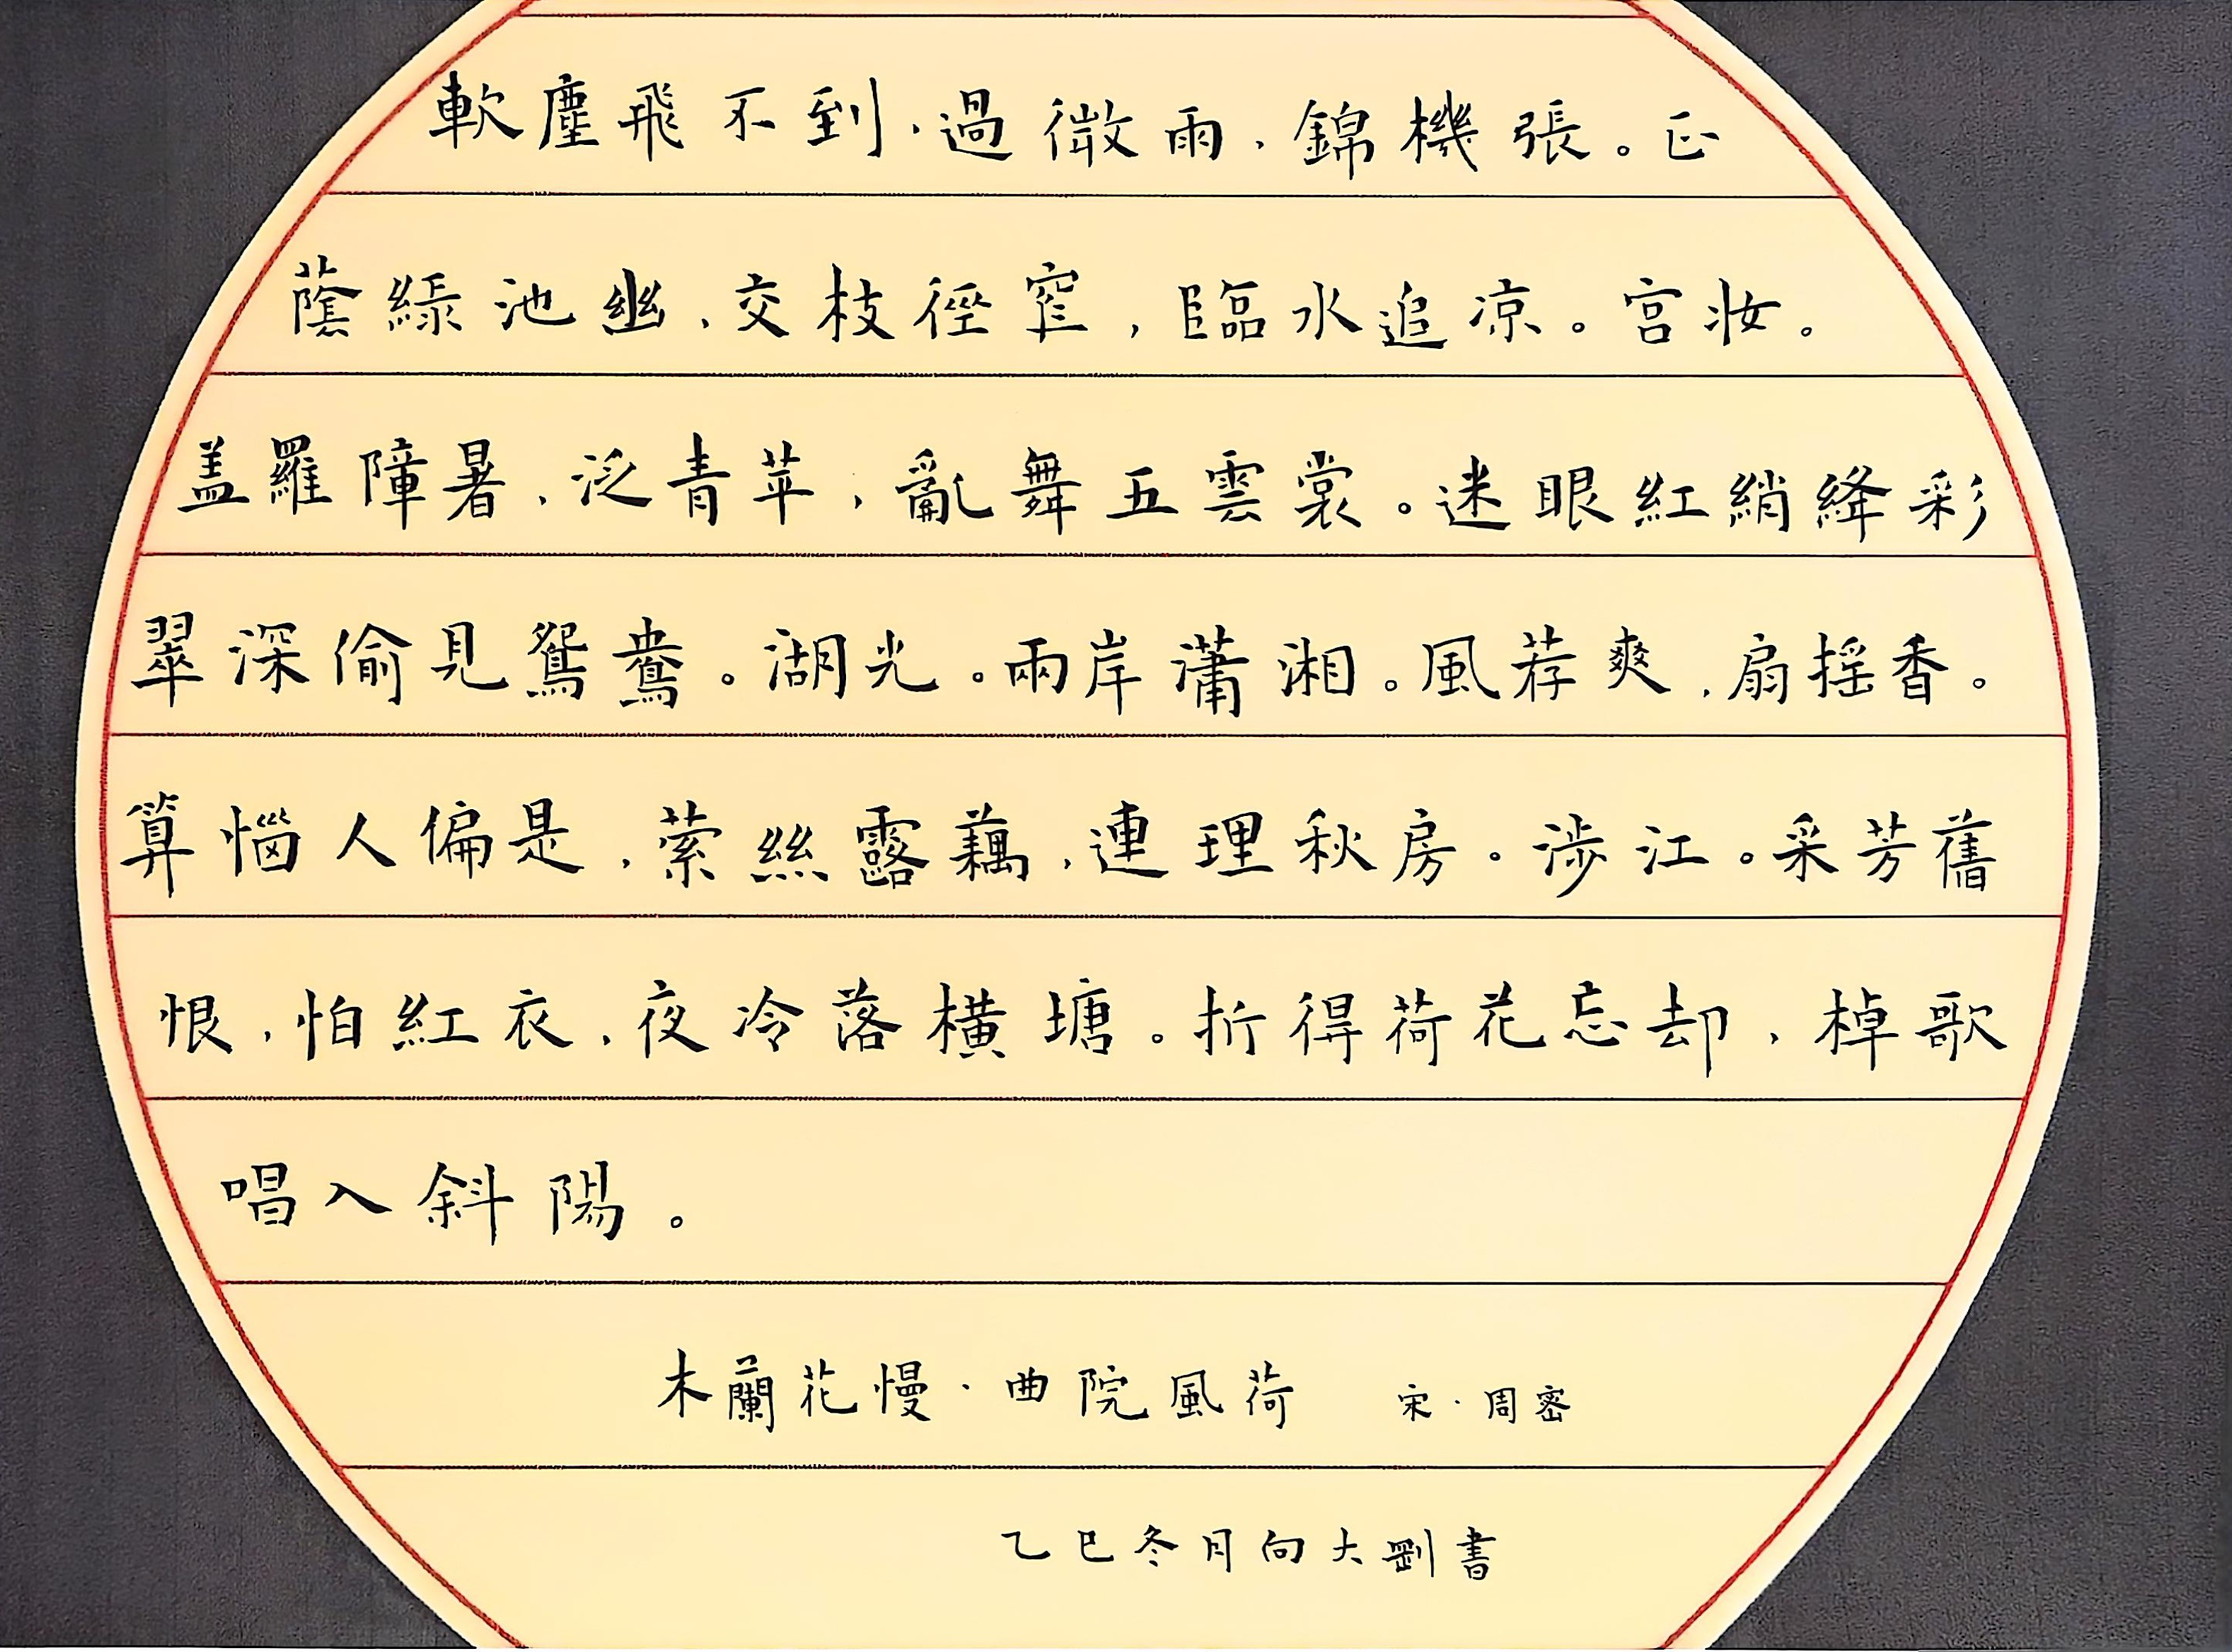 軟塵飛不到，過微雨，錦機張。正
蔭綠池幽，交枝徑窄，臨水追涼。宮妝。
盖羅障暑，泛青苹，亂舞五雲裳。迷眼紅綃絳彩
翠深偷見鴛鴦。湖光。兩岸瀟湘。風荐爽，扇摇香。
算惱人偏是，縈絲露藕，連理秋房。涉江。采芳舊
恨，怕紅衣，夜冷落橫塘。折得荷花忘却，棹歌
唱入斜陽。
木蘭花慢·曲院風荷 宋·周密
乙巳冬月向大劉書